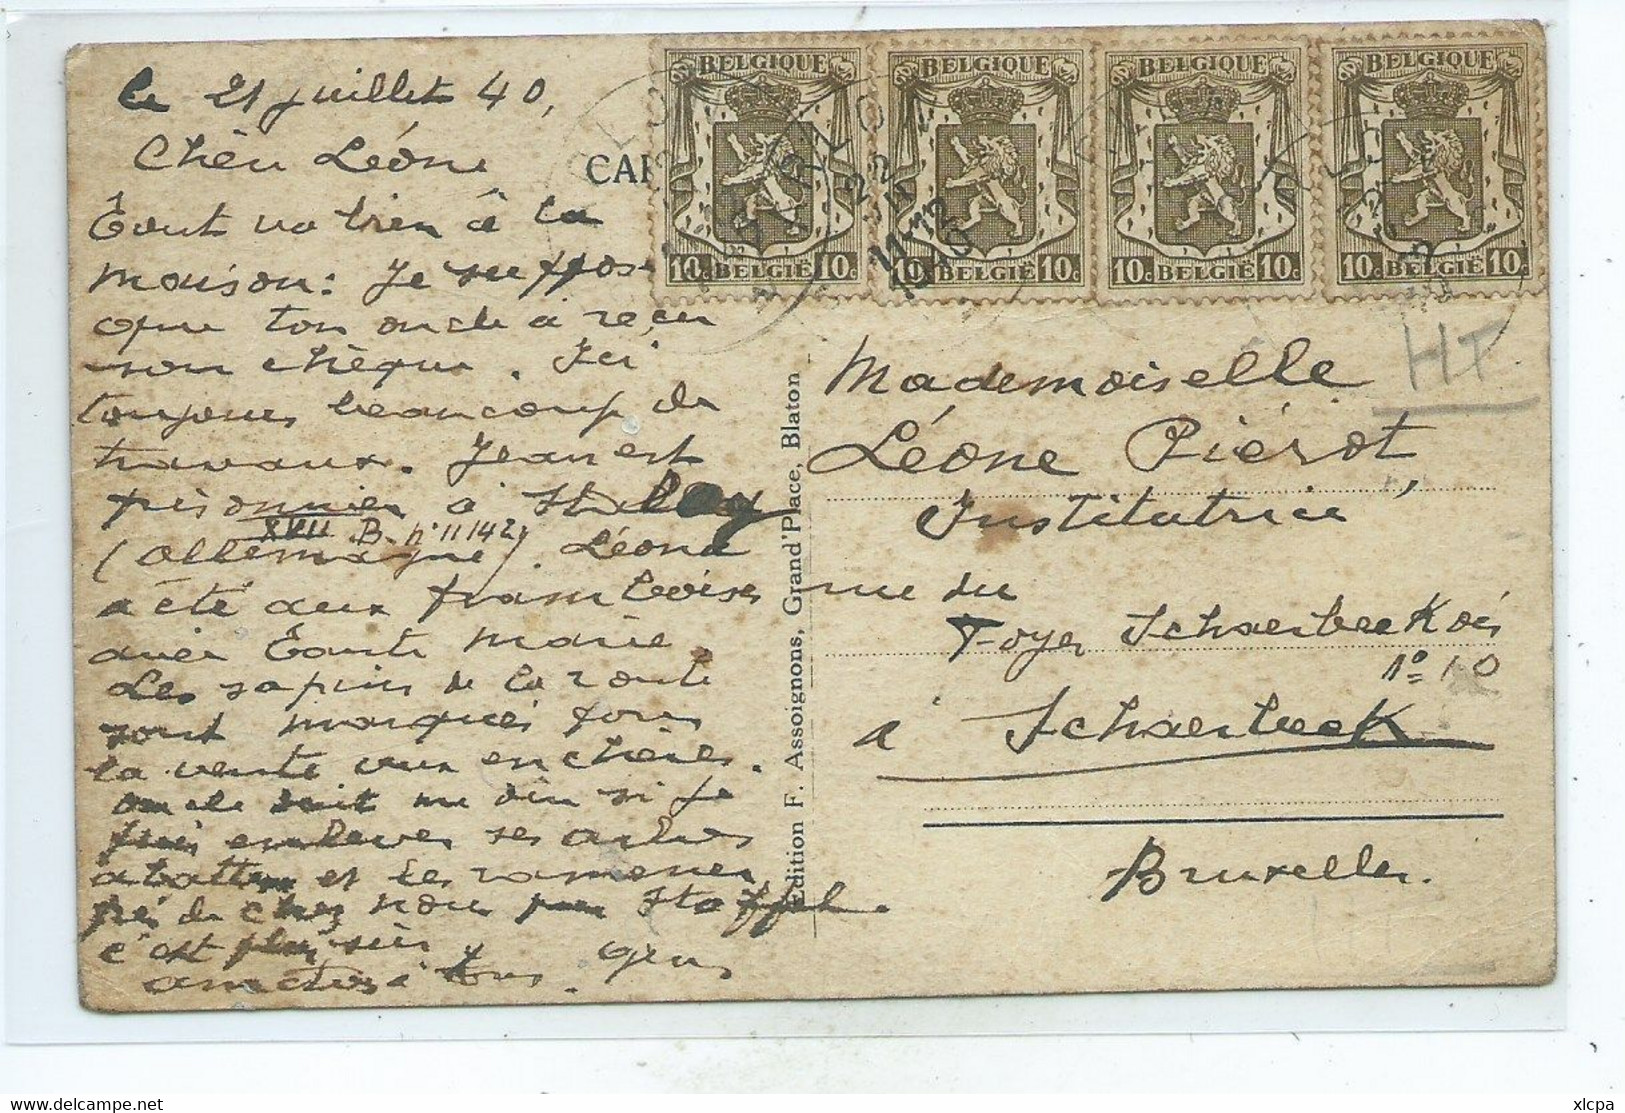 le 21 juillet 40,
Chère Léone
Tout va bien à la
maison: Je suppose
que ton oncle a reçu
son chèque. Ici
toujours beaucoup de
travaux. Jean est
prisonnier à Stalag
XVII B. n° 11142
(Allemagne). Léona
a été aux framboises
avec Tante Marie.
Les sapins de la route
sont marqués pour
la vente aux enchères.
oncle doit me dire si je
puis enlever ses arbres
abattus et les ramener
près de chez nous
c'est plus sûr.
amitiés à tous.
CAR
BELGIQUE
10c BELGIË 10c
BELGIQUE
10c BELGIË 10c
BELGIQUE
10c BELGIË 10c
BELGIQUE
10c BELGIË 10c
22
11-12
HT
Edition F. Assoignons, Grand'Place, Blaton
Mademoiselle
Léone Piérot,
Institutrice
rue du
Foyer Schaerbeekois
n° 10
à Schaerbeek
Bruxelles.
xlcpa